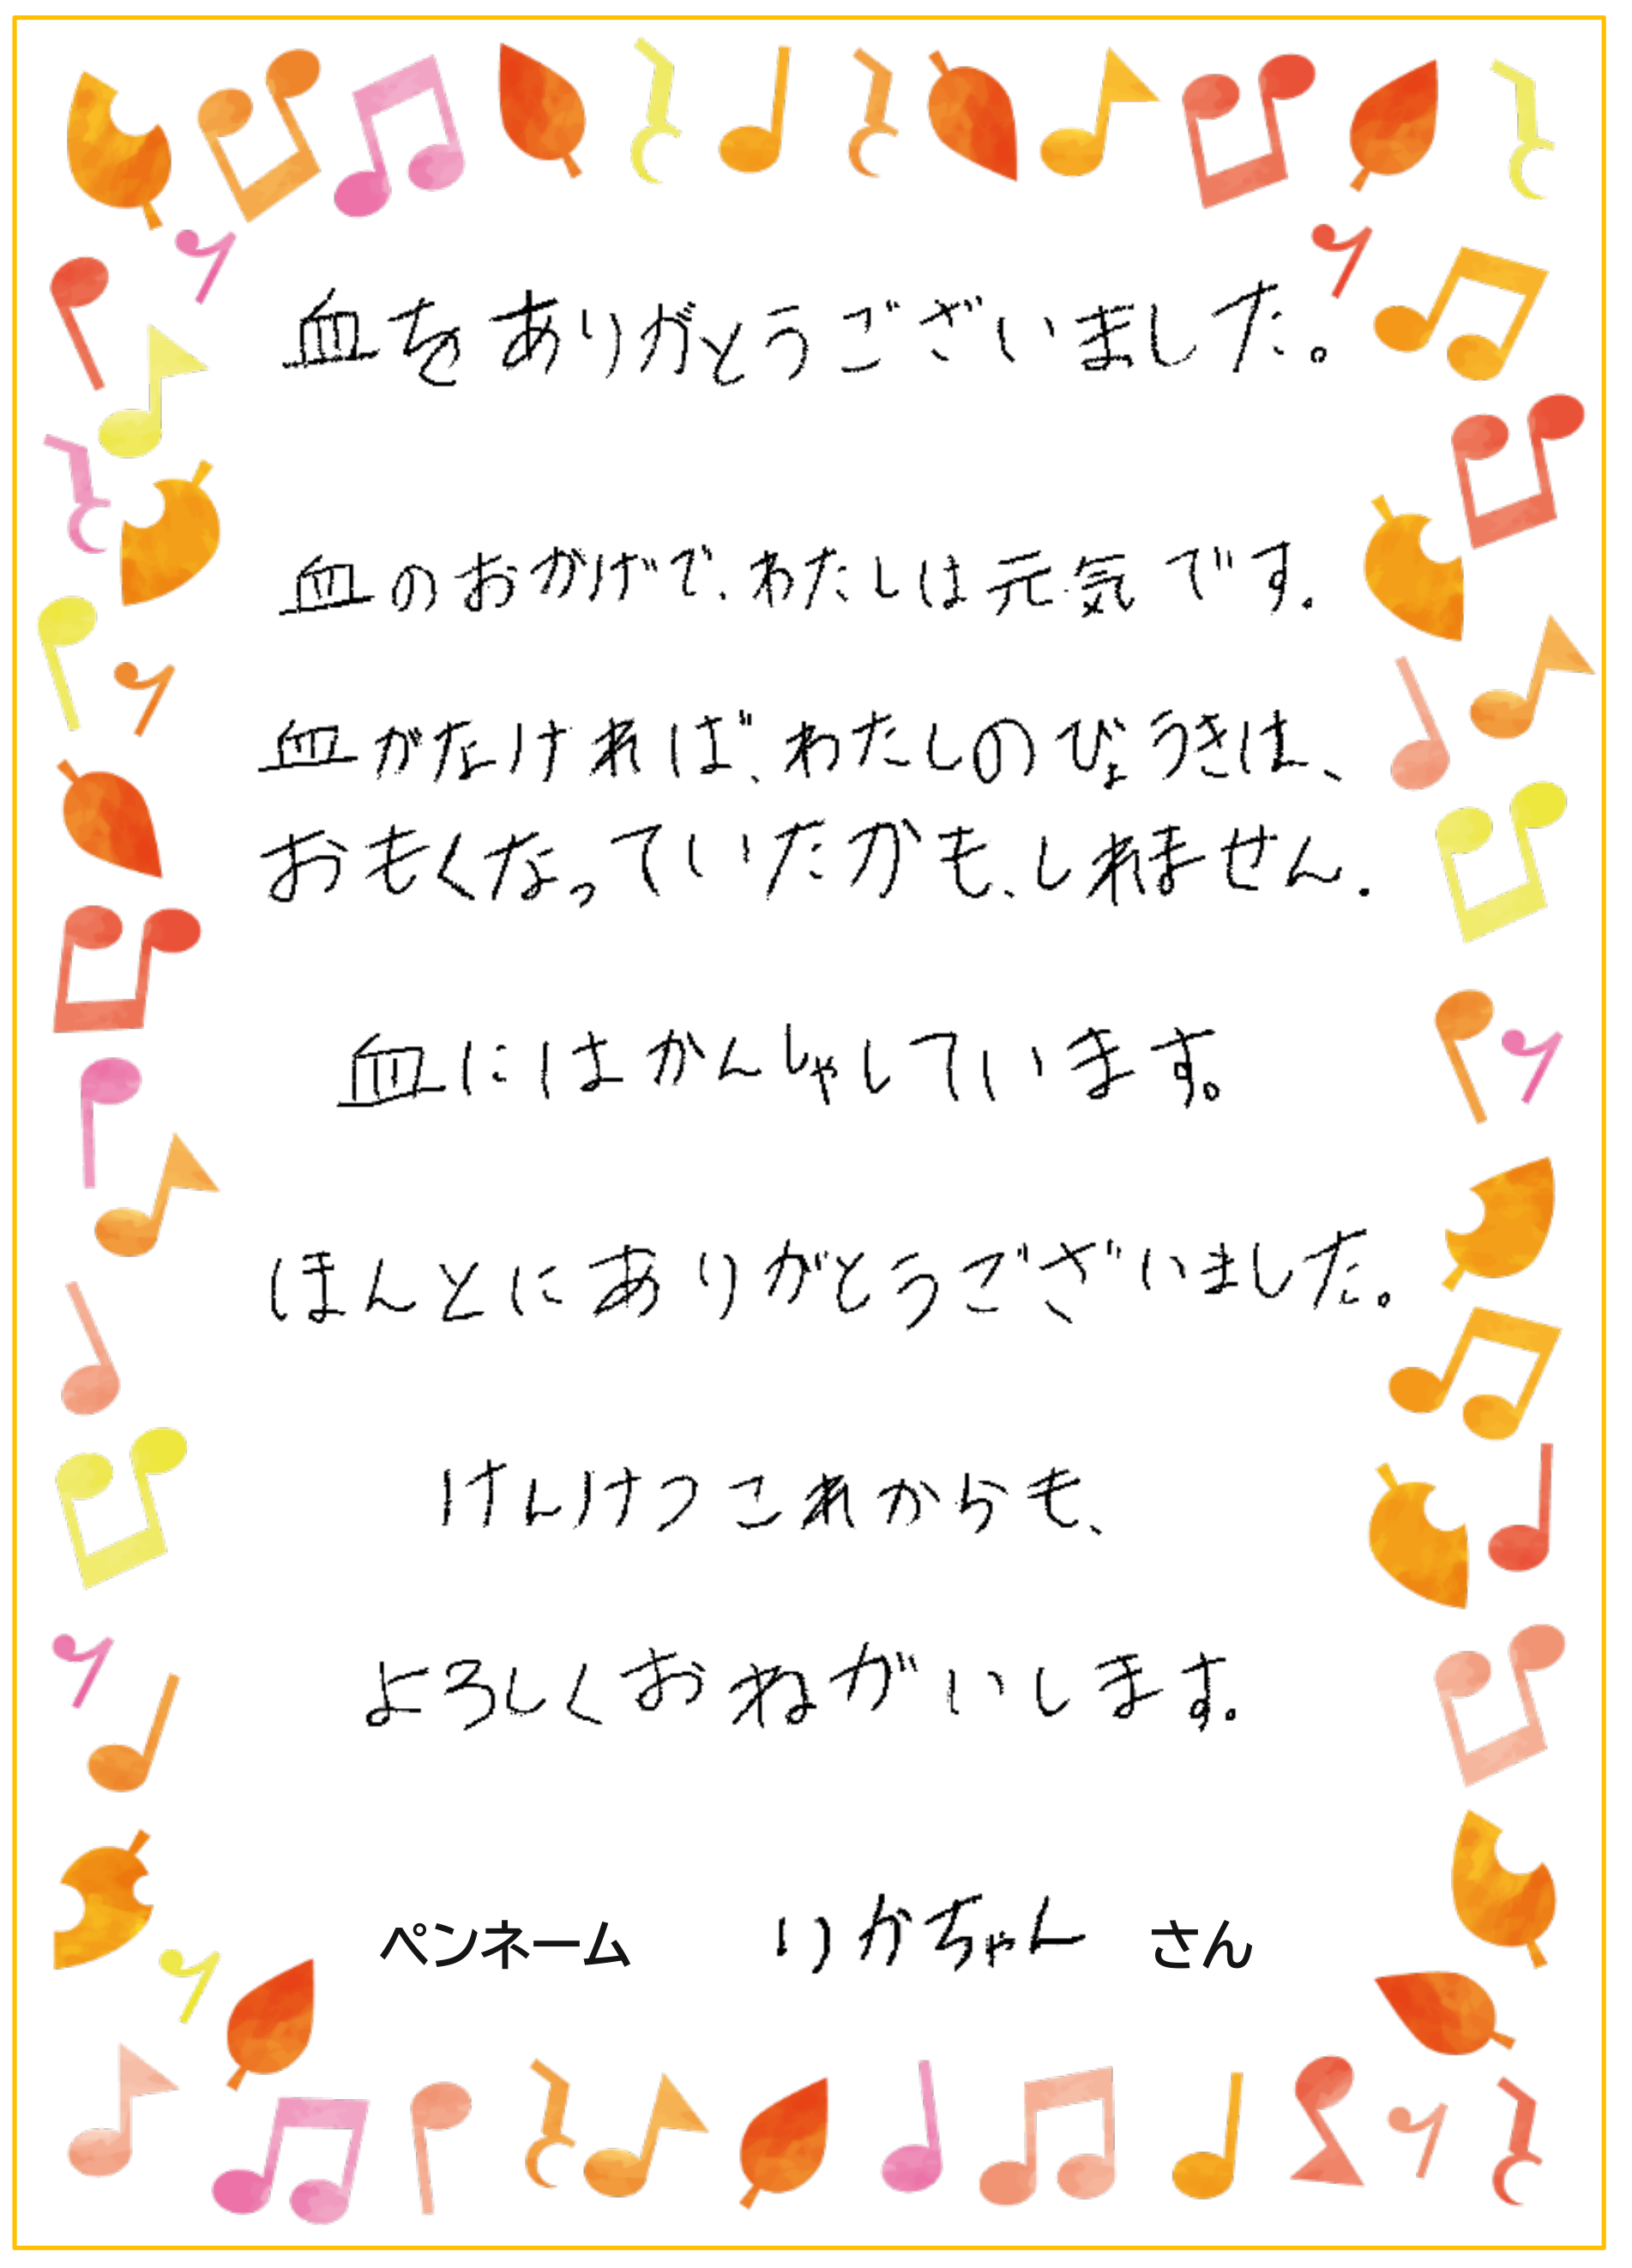 血をありがとうございました。
血のおかげで、わたしは元気です。
血がなければ、わたしのびょうきは、
おもくなっていたかも、しれません.
血にはかんしゃしています。
ほんとにありがとうございました。
けんけつこれからも、
よろしくおねがいします。
ペンネーム りかちゃん さん